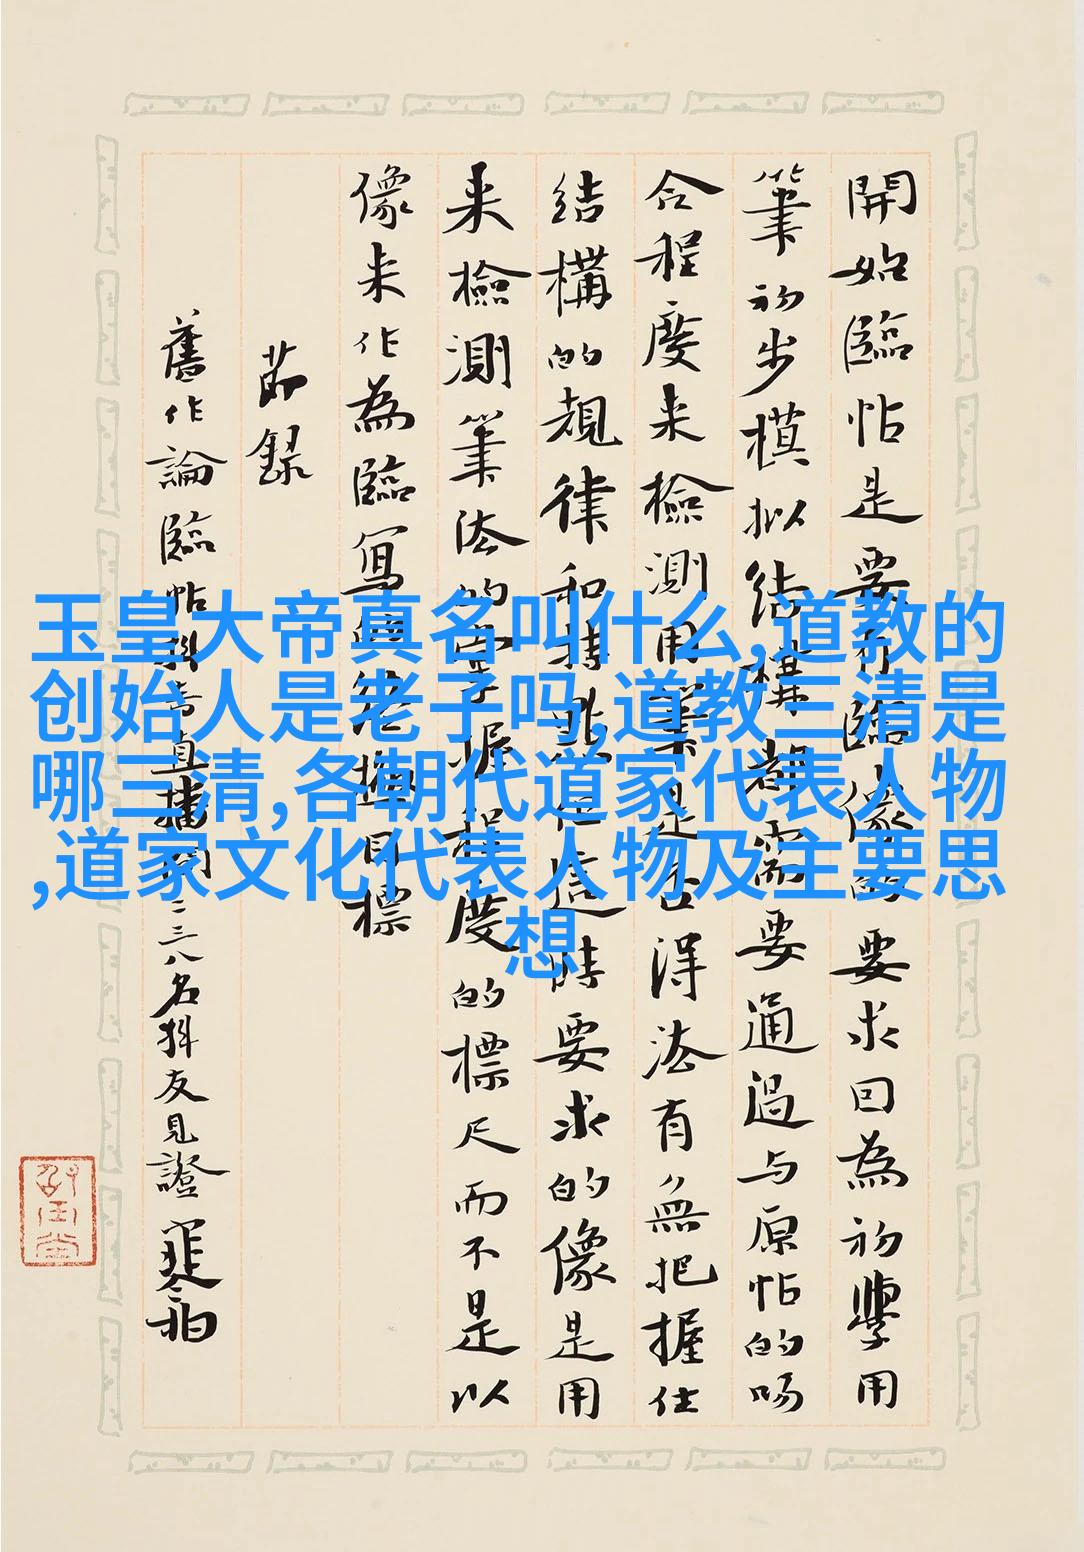 開始臨帖是要有臨像的要求因為初學用
筆初步模拟结構都需要通過与原帖的吻
合程度来檢測用筆是否得法有無把握住
结構的規律和特點但這時要求的像是用
来檢測筆法的掌握程度的標尺而不是以
像来作為臨寫目標
節録
舊作論臨帖抖音直播間二三八名抖友見證
玉皇大帝真名叫什么,道教的
创始人是老子吗,道教三清是
哪三清,各朝代道家代表人物
,道家文化代表人物及主要思
想